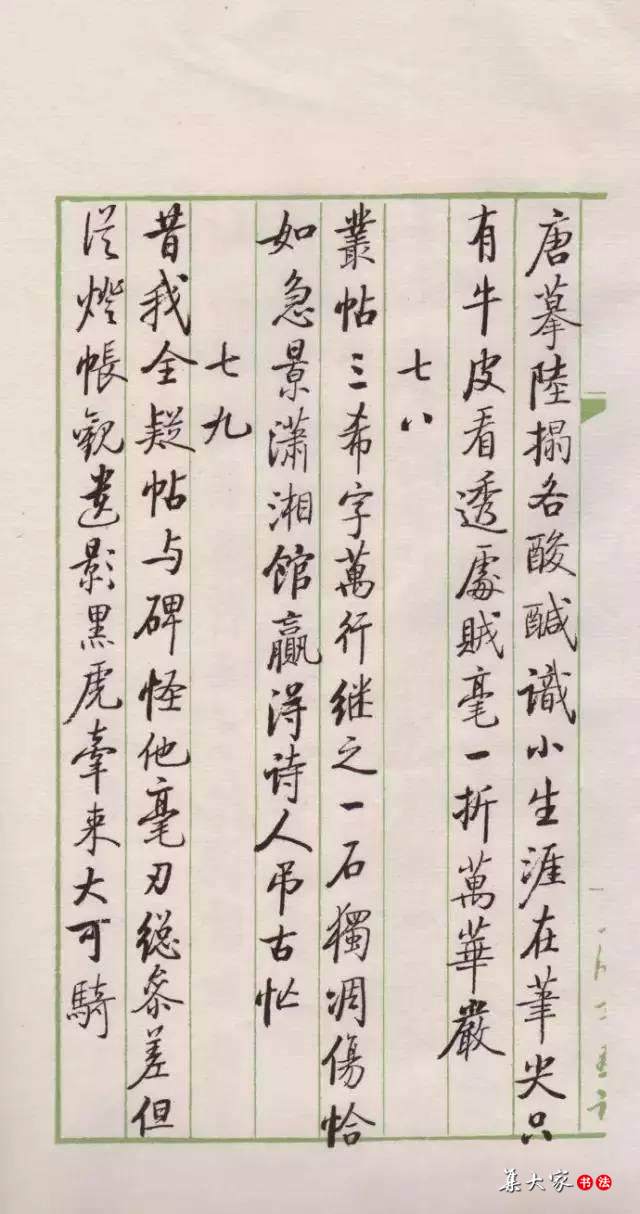 唐摹陸搨各酸醎識小生涯在筆尖只
有牛皮看透處賊毫一折萬華嚴
七八
叢帖三希字萬行继之一石獨凋傷恰
如急景瀟湘館贏得诗人吊古忙
七九
昔我全疑帖与碑怪他毫刃總参差但
從燈帳觀遺影黑虎牽来大可騎
集大家书法